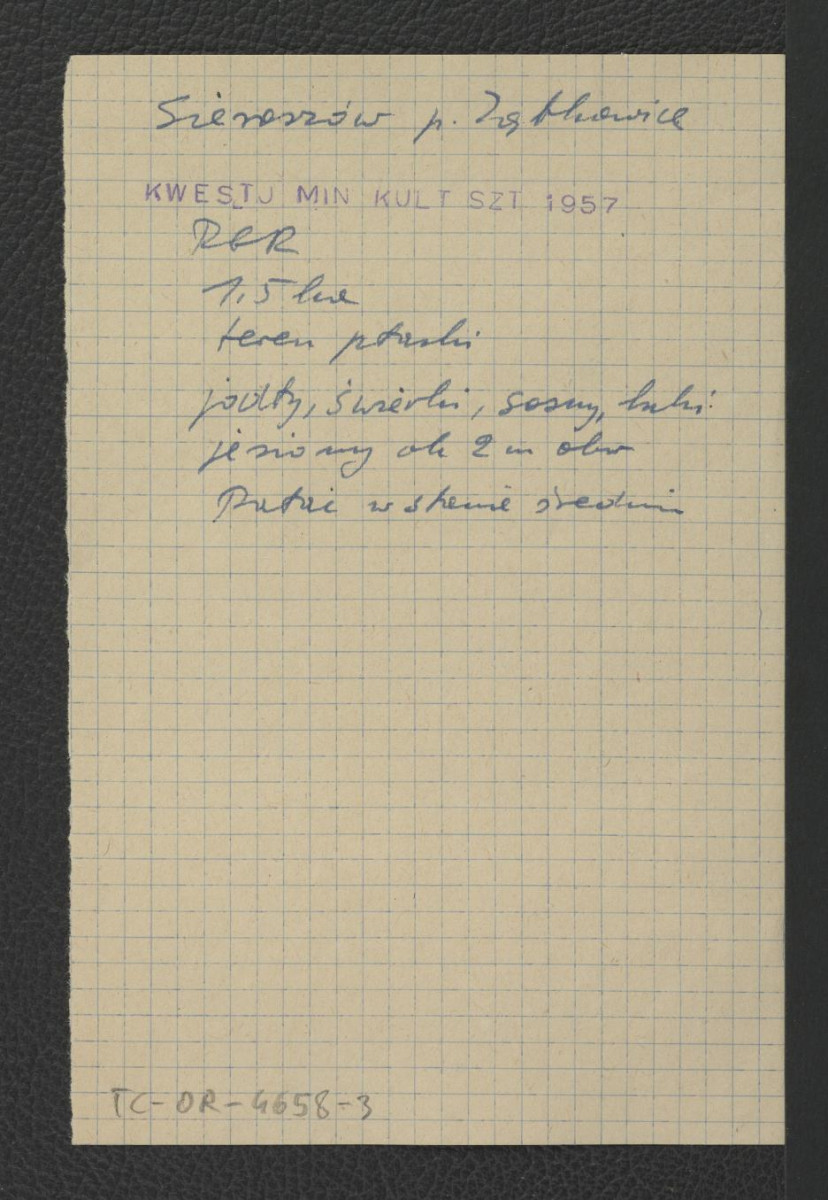 Sieroszów p. Ząbkowice
KWESTJ MIN KULT SZT 1957
PGR
1,5 ha
teren płaski
jodły, świerki, sosny, buki
jesiony ok 2 m obw
w stanie średnim
TC-DR-4658-3